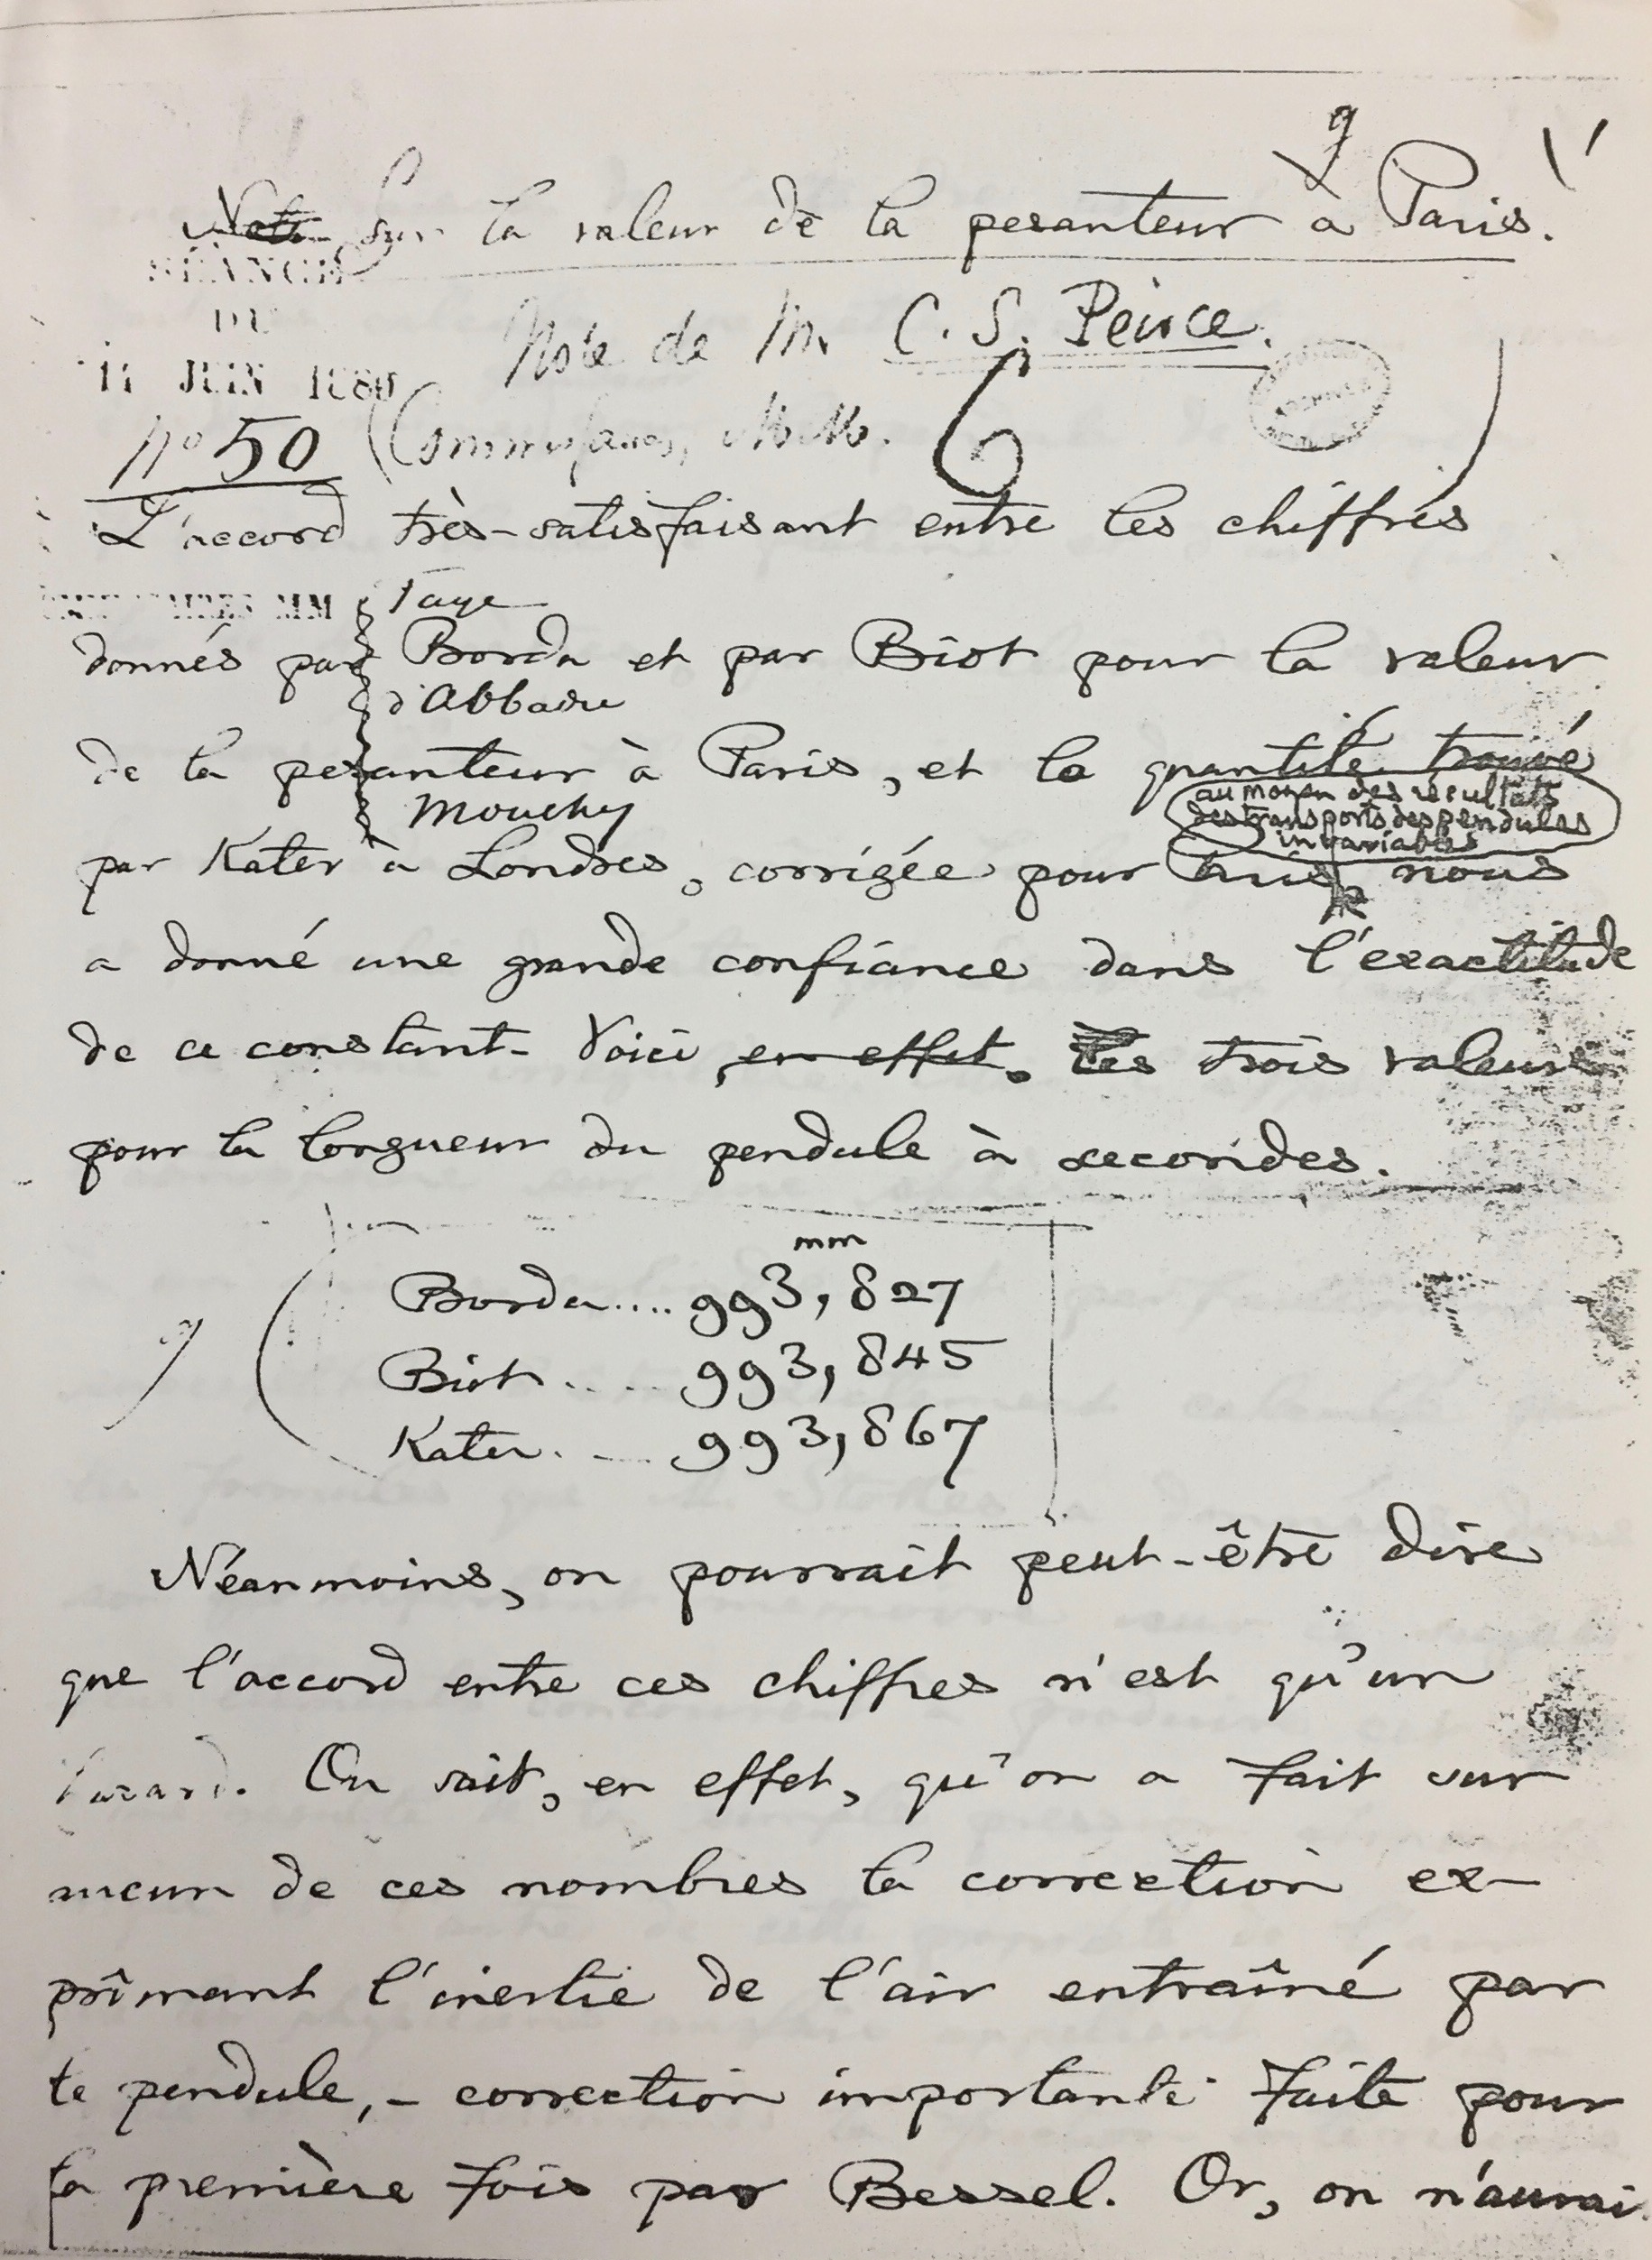 g
Note Sur la valeur de la pesanteur à Paris.
SÉANCE
DU
Note de M. C. S. Peirce.
14 JUIN 1880
N° 50
(Commissaires, MM. 6 )
L'accord très-satisfaisant entre les chiffres
MM Faye
donnés par Borda et par Biot pour la valeur
d'Abbadie
de la pesanteur à Paris, et la quantité trouvé
Mouchy
au moyen des résultats
des transports des pendules
invariables
par Kater à Londres, corrigée pour Paris nous
a donné une grande confiance dans l'exactitude
de ce constant. Voici en effet, les trois valeurs
pour la longueur du pendule à secondes.
mm
Borda.... 993,827
Biot..... 993,845
Kater.... 993,867
Néanmoins, on pourrait peut-être dire
que l'accord entre ces chiffres n'est qu'un
hazard. On sait, en effet, qu'on a fait sur
aucun de ces nombres la correction ex-
primant l'inertie de l'air entraîné par
le pendule, - correction importante faite pour
la première fois par Bessel. Or, on n'aurai